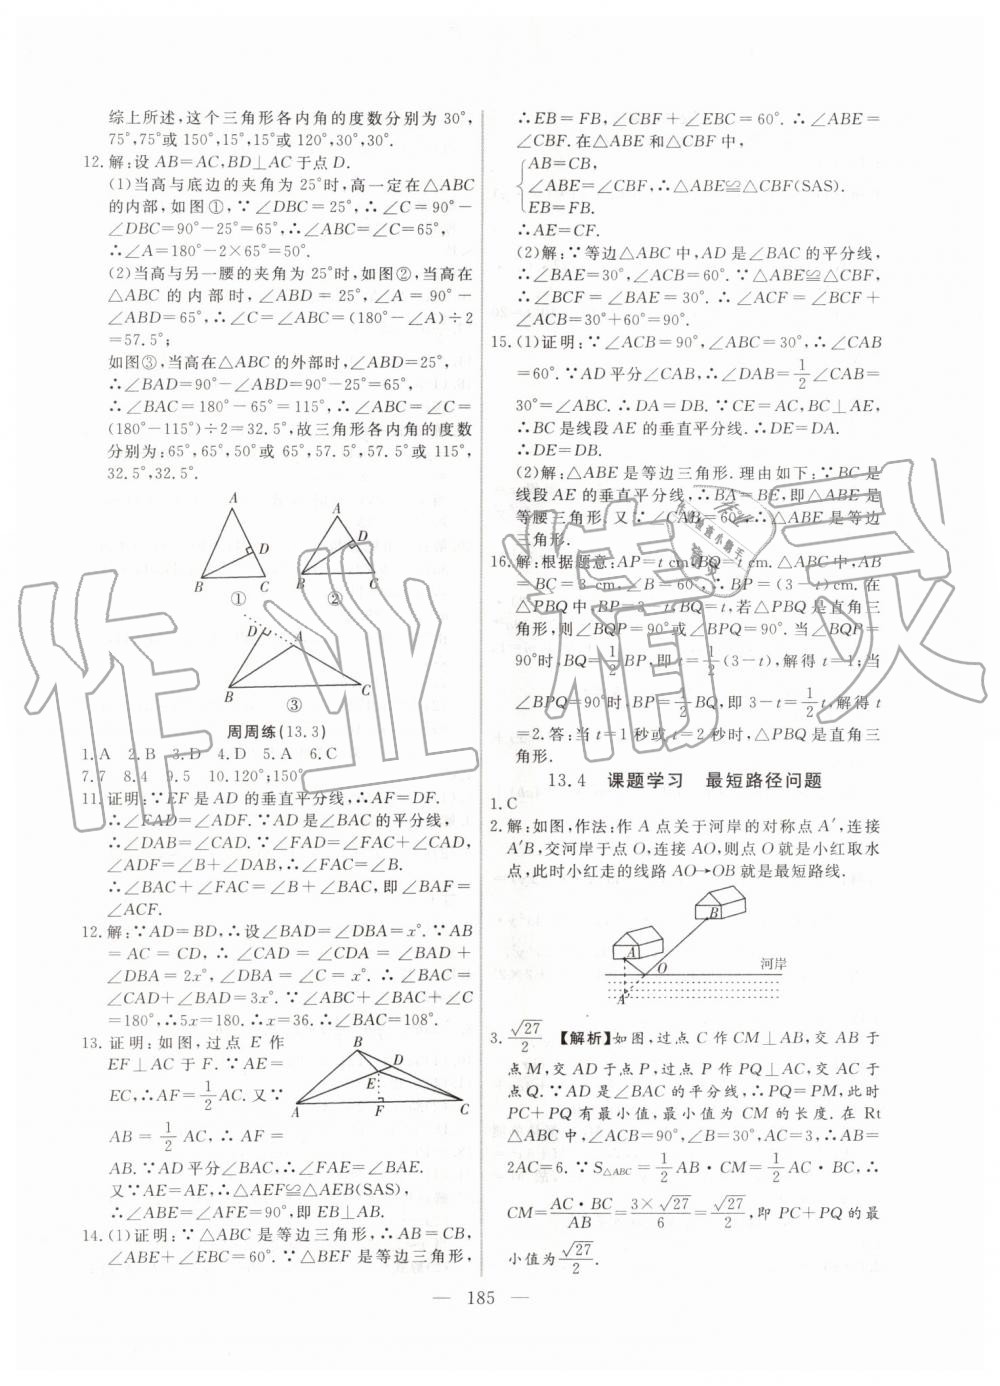 综上所述,这个三角形各内角的度数分别为 30°,
75°,75°或 150°,15°,15°或 120°,30°,30°.
12.解:设 AB=AC,BD⊥AC 于点 D.
(1)当高与底边的夹角为 25°时,高一定在△ABC
的内部,如图①,∵∠DBC=25°,∴∠C=90°-
∠DBC=90°-25°=65°,∴∠ABC=∠C=65°,
∴∠A=180°-2×65°=50°.
(2)当高与另一腰的夹角为 25°时,如图②,当高在
△ABC 的内部时,∠ABD=25°,∠A=90°-
∠ABD=65°,∴∠C=∠ABC=(180°-∠A)÷2
=57.5°;
如图③,当高在△ABC的外部时,∠ABD=25°,
∴∠BAD=90°-∠ABD=90°-25°=65°,
∴∠BAC=180°-65°=115°,∴∠ABC=∠C=
(180°-115°)÷2=32.5°,故三角形各内角的度数
分别为:65°,65°,50°或 65°,57.5°,57.5°或 115°,
32.5°,32.5°.
A
D
B
C
①
A
D
B
C
②
D
A
B
C
③
周周练(13.3)
1.A 2.B 3.D 4.D 5.A 6.C
7.7 8.4 9.5 10.120°;150°
11.证明:∵EF 是 AD 的垂直平分线,∴AF=DF.
∴∠FAD=∠ADF.∵AD 是∠BAC的平分线,
∴∠DAB=∠CAD.∵∠FAD=∠FAC+∠CAD,
∠ADF=∠B+∠DAB,∴∠FAC=∠B.
∴∠BAC+∠FAC=∠B+∠BAC,即∠BAF=
∠ACF.
12.解:∵AD=BD,∴设∠BAD=∠DBA=x°.∵AB
=AC=CD,∴∠CAD=∠CDA=∠BAD+
∠DBA=2x°,∠DBA=∠C=x°.∴∠BAC=
∠CAD+∠BAD=3x°.∵∠ABC+∠BAC+∠C
=180°,∴5x=180.∴x=36.∴∠BAC=108°.
13.证明:如图,过点 E 作
EF⊥AC 于 F.∵AE=
EC,∴AF=1/2 AC.又∵
AB=1/2 AC,∴AF=
AB.∵AD平分∠BAC,∴∠FAE=∠BAE.
又∵AE=AE,∴△AEF≌△AEB(SAS),
∴∠ABE=∠AFE=90°,即 EB⊥AB.
B
D
E
A
F
C
14.(1)证明:∵△ABC 是等边三角形,∴AB=CB,
∠ABE+∠EBC=60°.∵△BEF 是等边三角形,
∴EB=FB,∠CBF+∠EBC=60°.∴∠ABE=
∠CBF.在△ABE和△CBF中,
AB=CB,
∠ABE=∠CBF,∴△ABE≌△CBF(SAS).
EB=FB.
∴AE=CF.
(2)解:∵等边△ABC中,AD是∠BAC的平分线,
∴∠BAE=30°,∠ACB=60°.∵△ABE≌△CBF,
∴∠BCF=∠BAE=30°.∴∠ACF=∠BCF+
∠ACB=30°+60°=90°.
15.(1)证明:∵∠ACB=90°,∠ABC=30°,∴∠CAB
=60°.∵AD平分∠CAB,∴∠DAB=1/2∠CAB=
30°=∠ABC.∴DA=DB.∵CE=AC,BC⊥AE,
∴BC是线段 AE的垂直平分线.∴DE=DA.
∴DE=DB.
(2)解:△ABE是等边三角形.理由如下:∵BC是
线段AE的垂直平分线,∴BA=BE,即△ABE是
等腰三角形.又∵∠CAB=60°,∴△ABE是等边
三角形.
16.解:根据题意:AP=t cm,BQ=t cm.△ABC中,AB
=BC=3 cm,∠B=60°,∴BP=(3-t)cm.在
△PBQ中,BP=3-t,BQ=t,若△PBQ是直角三
角形,则∠BQP=90°或∠BPQ=90°.当∠BQP=
90°时,BQ=1/2 BP,即 t=1/2(3-t),解得 t=1;当
∠BPQ=90°时,BP=1/2 BQ,即 3-t=1/2 t,解得 t
=2.答:当 t=1秒或 t=2秒时,△PBQ是直角三
角形.
13.4 课题学习 最短路径问题
1.C
2.解:如图,作法:作 A 点关于河岸的对称点 A′,连接
A′B,交河岸于点 O,连接 AO,则点 O 就是小红取水
点,此时小红走的线路 AO→OB 就是最短路线.
B
A
O
河岸
A′
3.√27/2 【解析】如图,过点 C 作 CM⊥AB,交 AB 于
点M,交 AD 于点 P,过点 P 作 PQ⊥AC,交 AC 于
点Q.∵AD 是∠BAC 的平分线,∴PQ=PM,此时
PC+PQ 有最小值,最小值为 CM 的长度.在 Rt
△ABC 中,∠ACB=90°,∠B=30°,AC=3,∴AB=
2AC=6.∵S△ABC=1/2 AB·CM=1/2 AC·BC,∴
CM=AC·BC/AB=3×√27/6=√27/2,即 PC+PQ 的最
小值为√27/2.
— 185 —
作业精灵